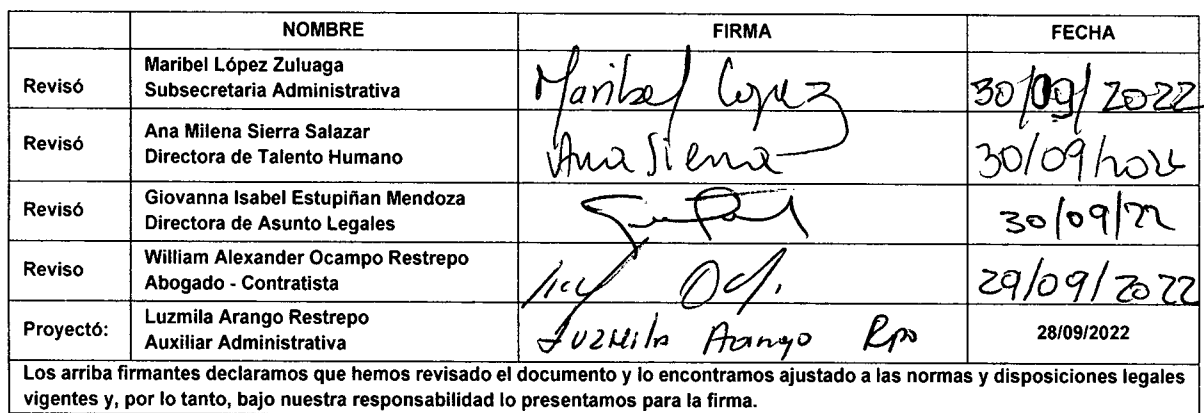 NOMBRE FIRMA FECHA
Revisó Maribel López Zuluaga
Subsecretaria Administrativa Maribel Lopez 30/09/2022
Revisó Ana Milena Sierra Salazar
Directora de Talento Humano Ana Sierra 30/09/2022
Revisó Giovanna Isabel Estupiñan Mendoza
Directora de Asunto Legales 30/09/22
Reviso William Alexander Ocampo Restrepo
Abogado - Contratista 29/09/2022
Proyectó: Luzmila Arango Restrepo
Auxiliar Administrativa Luzmila Arango Rpo 28/09/2022
Los arriba firmantes declaramos que hemos revisado el documento y lo encontramos ajustado a las normas y disposiciones legales
vigentes y, por lo tanto, bajo nuestra responsabilidad lo presentamos para la firma.